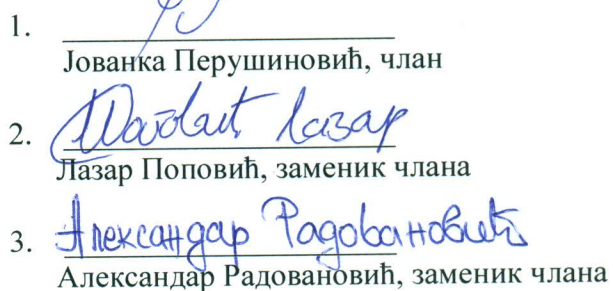 1.
Јованка Перушиновић, члан
Поповић Лазар
2.
Лазар Поповић, заменик члана
Александар Радовановић
3.
Александар Радовановић, заменик члана